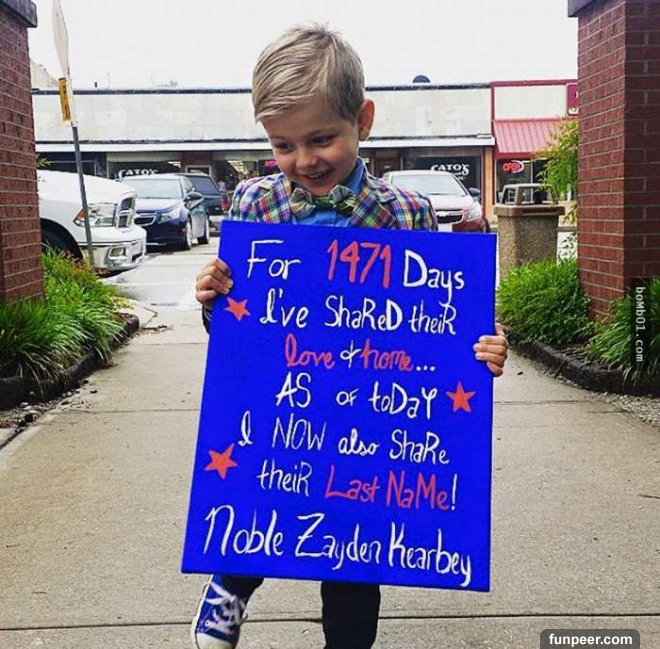 CATO'S
CATO'S
OPEN
For 1471 Days
I've ShaReD theiR
love & home...
AS oF toDaY
I NOW also ShaRe
theiR Last NaMe!
Noble Zayden Kearbey
boMb01.com
funpeer.com